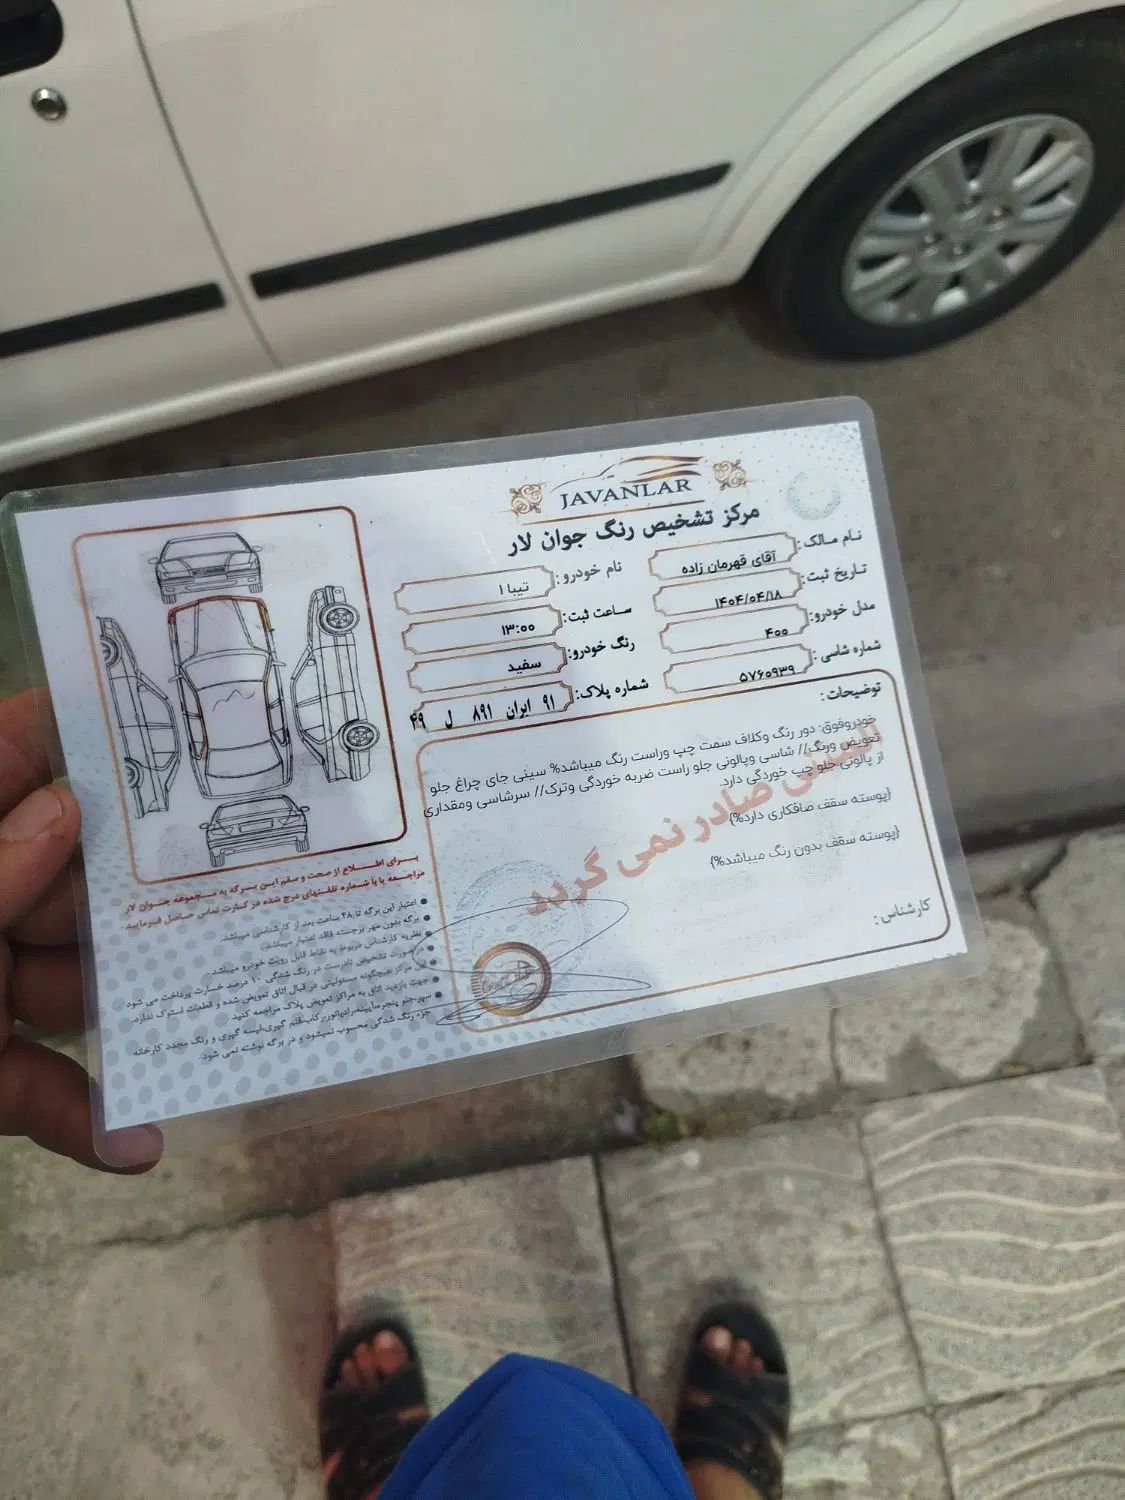 JAVANLAR
مرکز تشخیص رنگ جوان لار
نام مالک: آقای قهرمان زاده
نام خودرو: تیبا ۱
تاریخ ثبت: ۱۴۰۴/۰۴/۱۸
ساعت ثبت: ۱۳:۰۰
مدل خودرو: ۴۰۰
رنگ خودرو: سفید
شماره شاسی: ۵۷۶۰۹۳۹
شماره پلاک: ۹۱ ایران ۸۹۱ ل ۴۹
توضیحات:
خودروفوق: دور رنگ وکلاف سمت چپ وراست رنگ میباشد% سینی جای چراغ جلو
تعویض ورنگ// شاسی وپالونی جلو راست ضربه خوردگی وترک// سرشاسی ومقداری
از پالونی جلو چپ خوردگی دارد.
{پوسته سقف صافکاری دارد%}
{پوسته سقف بدون رنگ میباشد%}
صادر نمی گردد
کارشناس:
برای اطلاع از صحت و سقم این برگه به مجموعه جوان لار
مراجعه یا با شماره تلفنهای درج شده در کارت تماس حاصل فرمایید.
اعتبار این برگه تا ۴۸ ساعت بعد از کارشناسی میباشد.
برگه بدون مهر برجسته فاقد اعتبار میباشد.
نظریه کارشناس مربوط به نقاط قابل رویت خودرو میباشد.
در صورت تشخیص نادرست در رنگ شدگی ۱۰ درصد خسارت پرداخت می شود
این مرکز هیچگونه مسئولیتی در قبال اتاق تعویض شده و قطعات استوک ندارد.
جهت بازدید اتاق به مراکز تعویض پلاک مراجعه کنید.
سپر،جلو پنجره،آیینه،رادیاتور،رکاب،قلم گیری،لیسه گیری و رنگ مجدد کارخانه
جزء رنگ شدگی محسوب نمیشود و در برگه نوشته نمی شود.